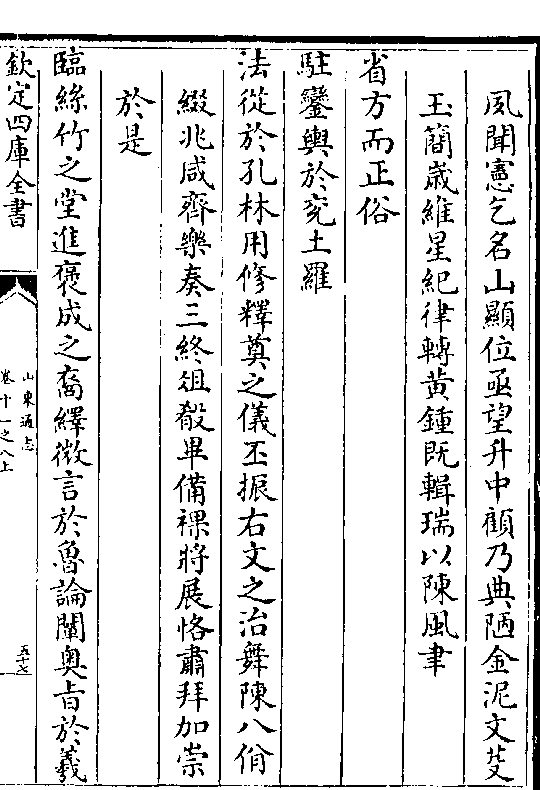 夙聞憲乞名山顯位亟望升中顧乃典陋金泥文芟
玉簡歲維星紀律轉黄鍾既輯瑞以陳風聿
省方而正俗
駐鑾輿於兖土羅
法從於孔林用修釋奠之儀丕振右文之治舞陳八佾
綴兆咸齊樂奏三終俎殽畢備祼將展恪肅拜加崇
於是
臨絲竹之堂進褒成之裔繹微言於魯論闡奥旨於羲
欽定四庫全書
山東通志
卷十一之八上
五十七